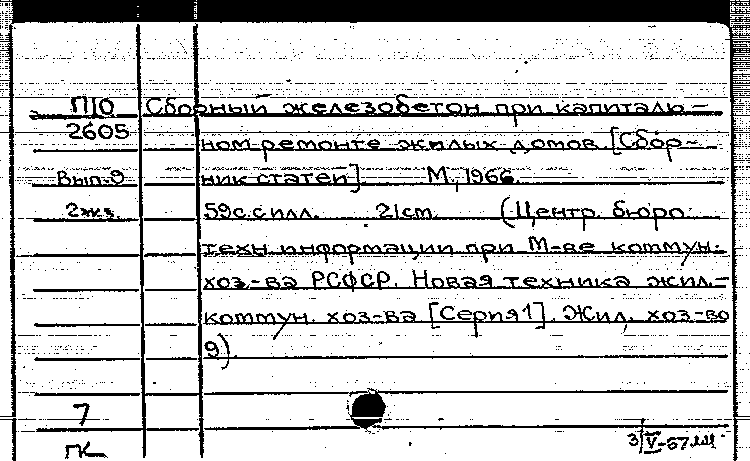 П10 Сборный железобетон при капиталь-
2605 ном ремонте жилых домов [Сбор-
Вып.9 ник статей]. М., 1966.
2жкз. 59с.с илл. 21см. (Центр. бюро
техн. информации при М-ве коммун.
хоз-ва РСФСР. Новая техника жил.-
коммун. хоз-ва [Серия 1]. Жил. хоз-во
9).
7
ПК
3/V-67